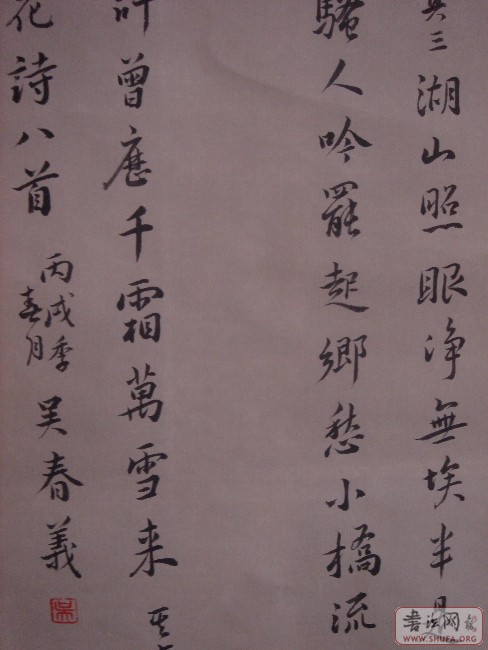 其三湖山照眼净無埃半
騷人吟罷起鄉愁小橋流
許曾歷千霜萬雪来其
花詩八首
丙戌季
春月
吴春義
書法网
WWW.SHUFA.ORG